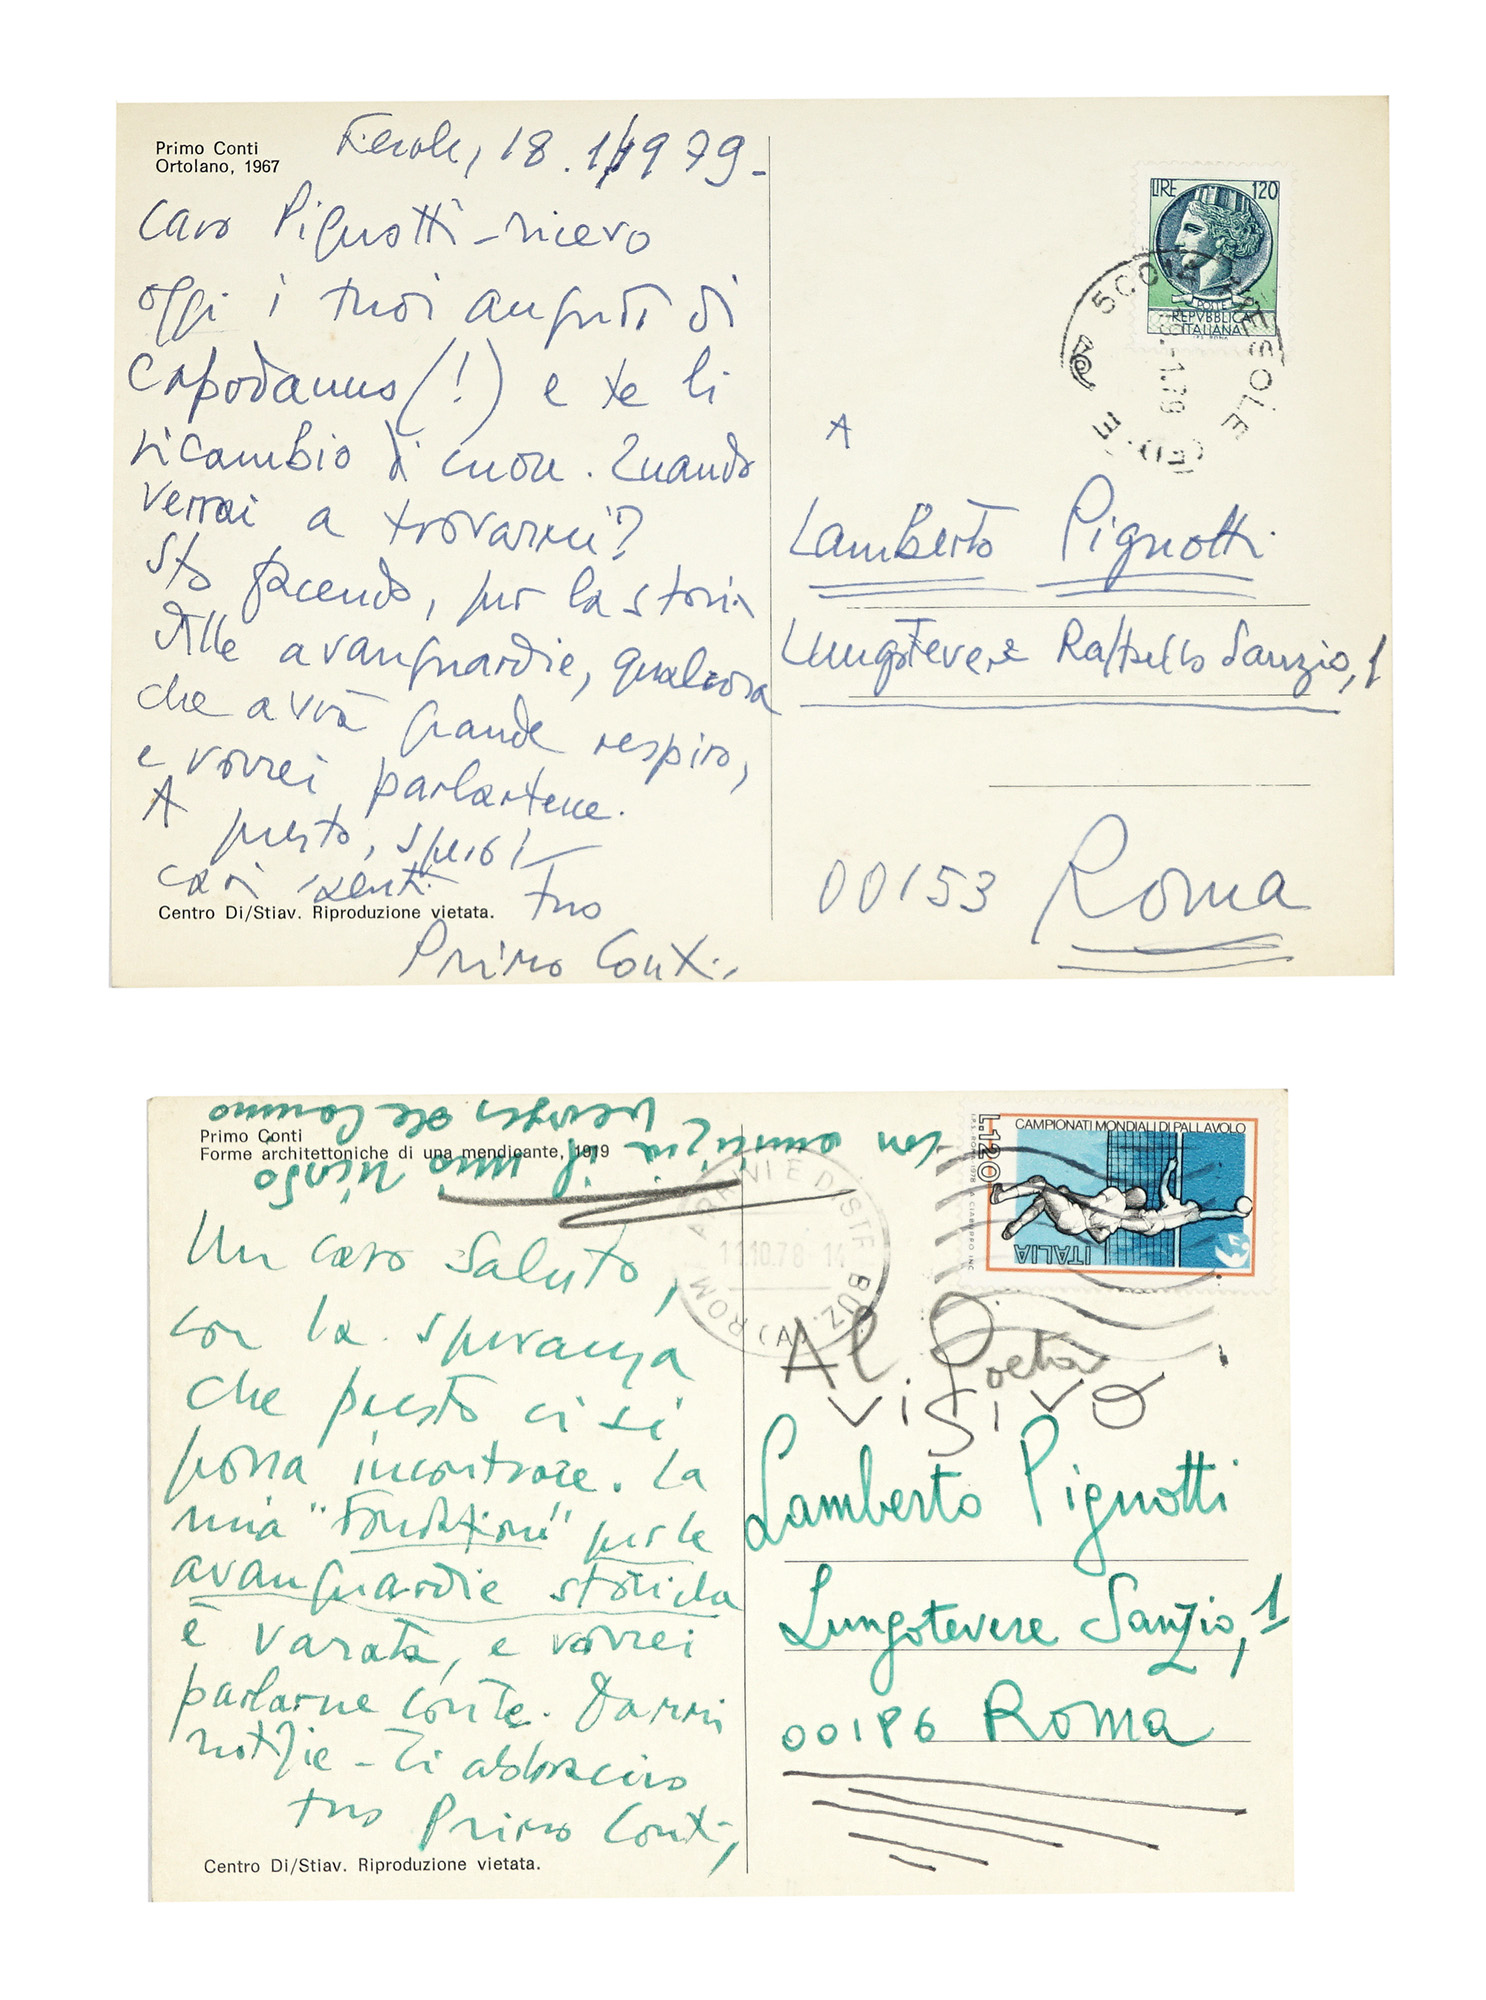 Primo Conti
Ortolano, 1967
Fiesole, 18.1.1979-
Caro Pignotti - ricevo
oggi i tuoi auguri di
Capodanno (!) e te li
ricambio di cuore. Quando
verrai a trovarmi?
Sto facendo, per la storia
delle avanguardie, qualcosa
che avrà grande respiro,
e vorrei parlartene.
A presto, spero!
cari saluti tuo
Centro Di/Stiav. Riproduzione vietata.
Primo Conti
LIRE 120
POSTE
REPVBBLICA
ITALIANA
50014 FIESOLE
A
Lamberto Pignotti
Lungotevere Raffaello Sanzio, 1
00153 Roma
con amicizia il mio
Primo Conti
Forme architettoniche di una mendicante, 1919
Un caro saluto,
con la speranza
che presto ci si
possa incontrare. La
mia "Fondazione" per le
avanguardie storiche
è varata, e vorrei
parlarne con te. Dammi
notizie - Ti abbraccio
tuo Primo Conti
Centro Di/Stiav. Riproduzione vietata.
L.120
CAMPIONATI MONDIALI DI PALLAVOLO
ITALIA
ROMA ARRIVI E DISTR
10.78-14
Al Poeta
VISIVO
Lamberto Pignotti
Lungotevere Sanzio, 1
00196 Roma